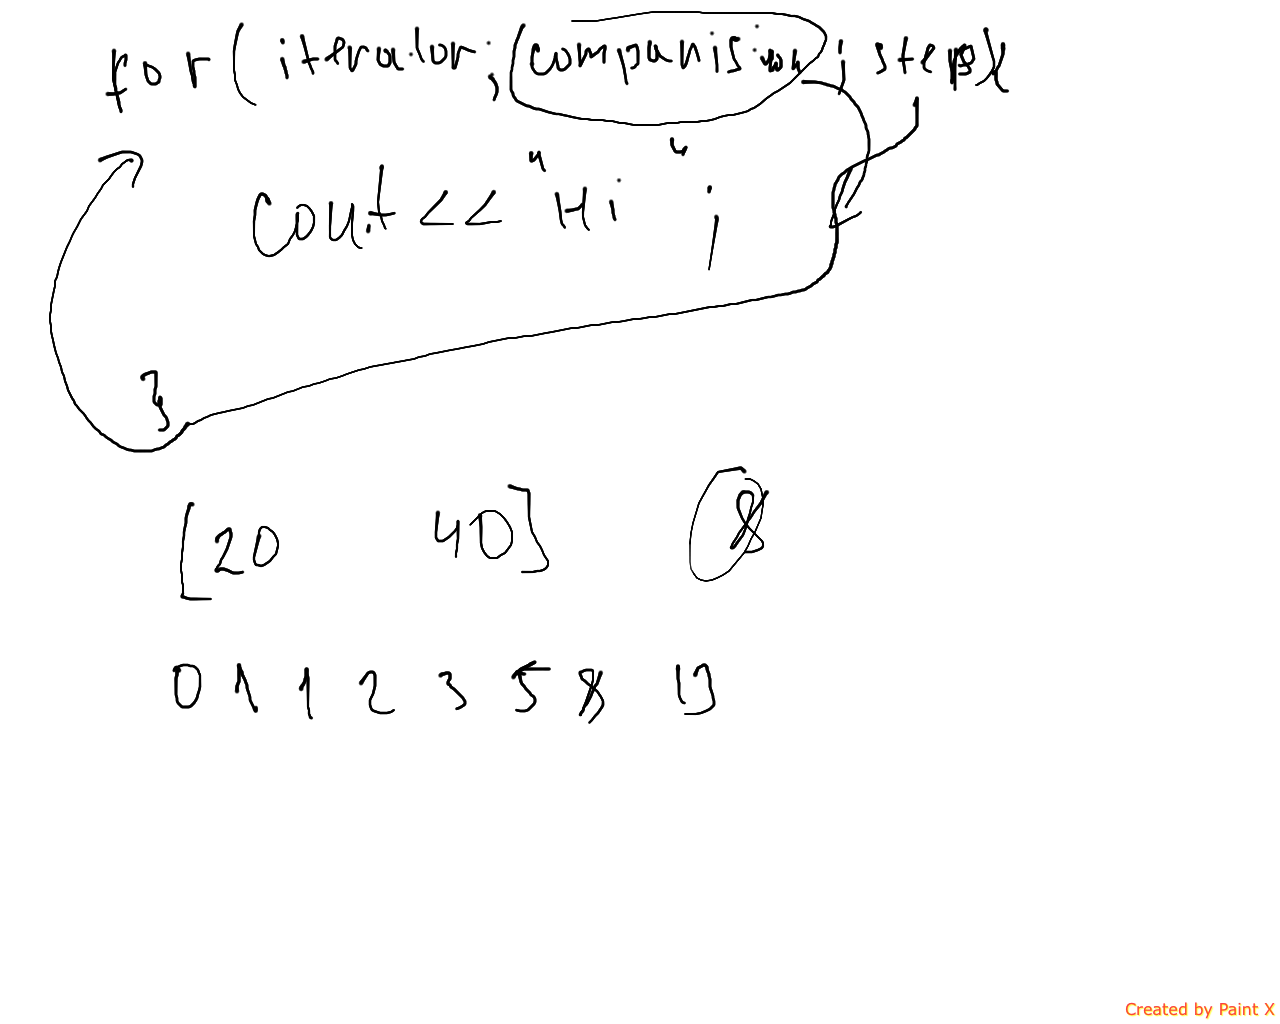 for( iterator; companision; steps){
cout << "Hi";
}
[20 40] 8
0 1 1 2 3 5 8 13
Created by Paint X